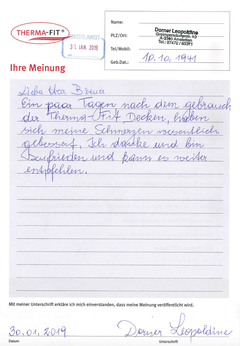 THERMA-FIT®
31. JAN. 2019
Name:
Dorner Leopoldine
PLZ/Ort:
A-3300 Amstetten
Tel./Mobil:
Tel.: 07472 /
Geb.Dat.:
10.10.1941
Ihre Meinung
Liebe
Ein paar Tagen nach dem gebrauch
der Therma-Fit Decken, haben
sich meine Schmerzen wesentlich
gebessert. Ich danke und bin
Zufrieden und kann es weiter
empfehlen.
Mit meiner Unterschrift erkläre ich mich einverstanden, dass meine Meinung veröffentlicht wird.
30.01.2019
Dorner Leopoldine
Datum
Unterschrift